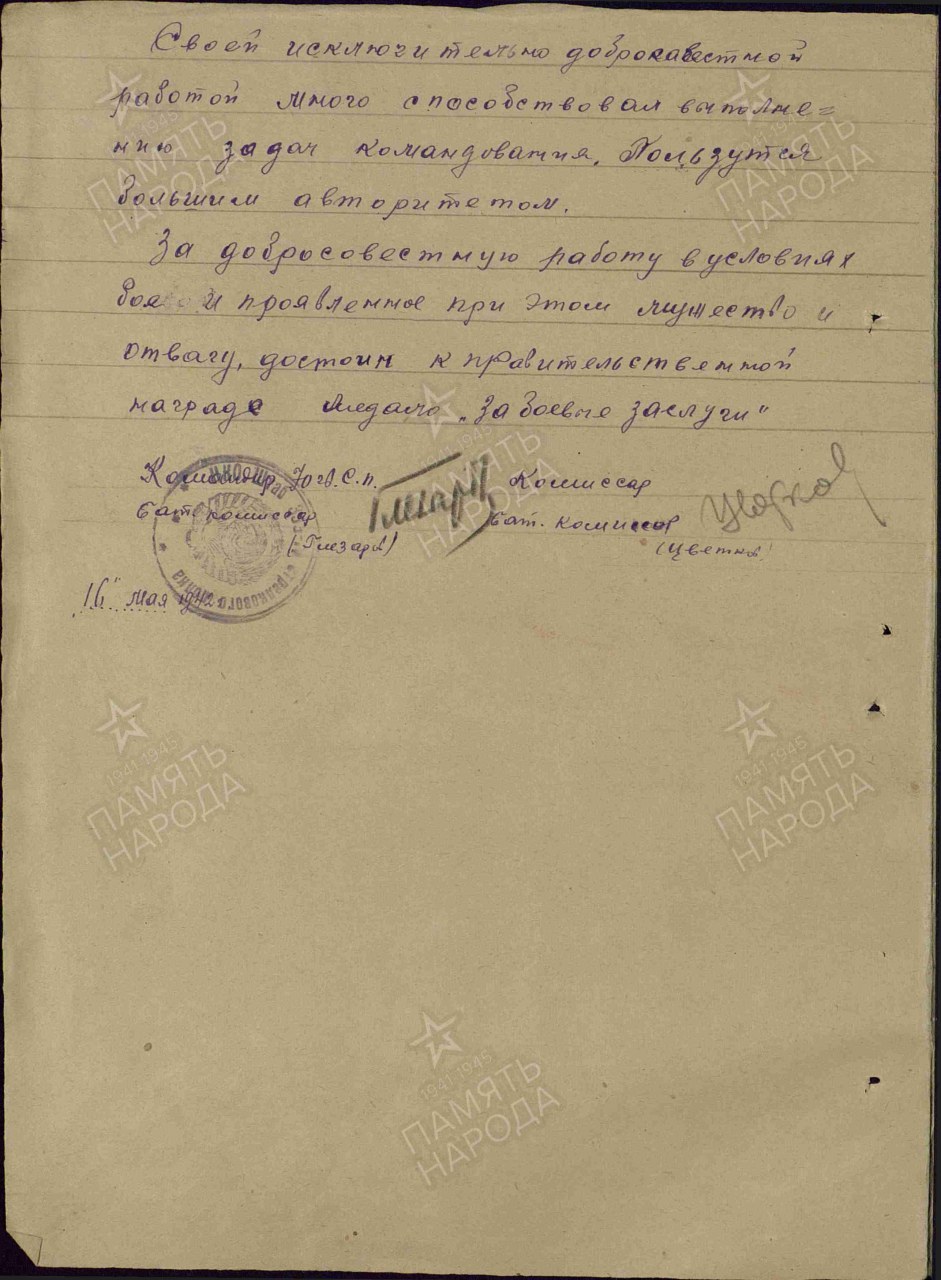 Своей исключительно доброкавестной
работой много способствовал выполне=
нию задач командования. Пользутся
большим авторитетом.
За добросовестную работу в условиях
боя и проявленное при этом мужество и
отвагу, достоин к правительственной
награде медаль „За боевые заслуги"
Командир гв. С.п. Комиссар
Бат комиссар Бат. комиссар
(Цветков)
„16" мая 1942
стрелкового полка
1941-1945
ПАМЯТЬ
НАРОДА
1941-1945
ПАМЯТЬ
НАРОДА
1941-1945
ПАМЯТЬ
НАРОДА
1941-1945
ПАМЯТЬ
НАРОДА
1941-1945
ПАМЯТЬ
НАРОДА
1941-1945
ПАМЯТЬ
НАРОДА